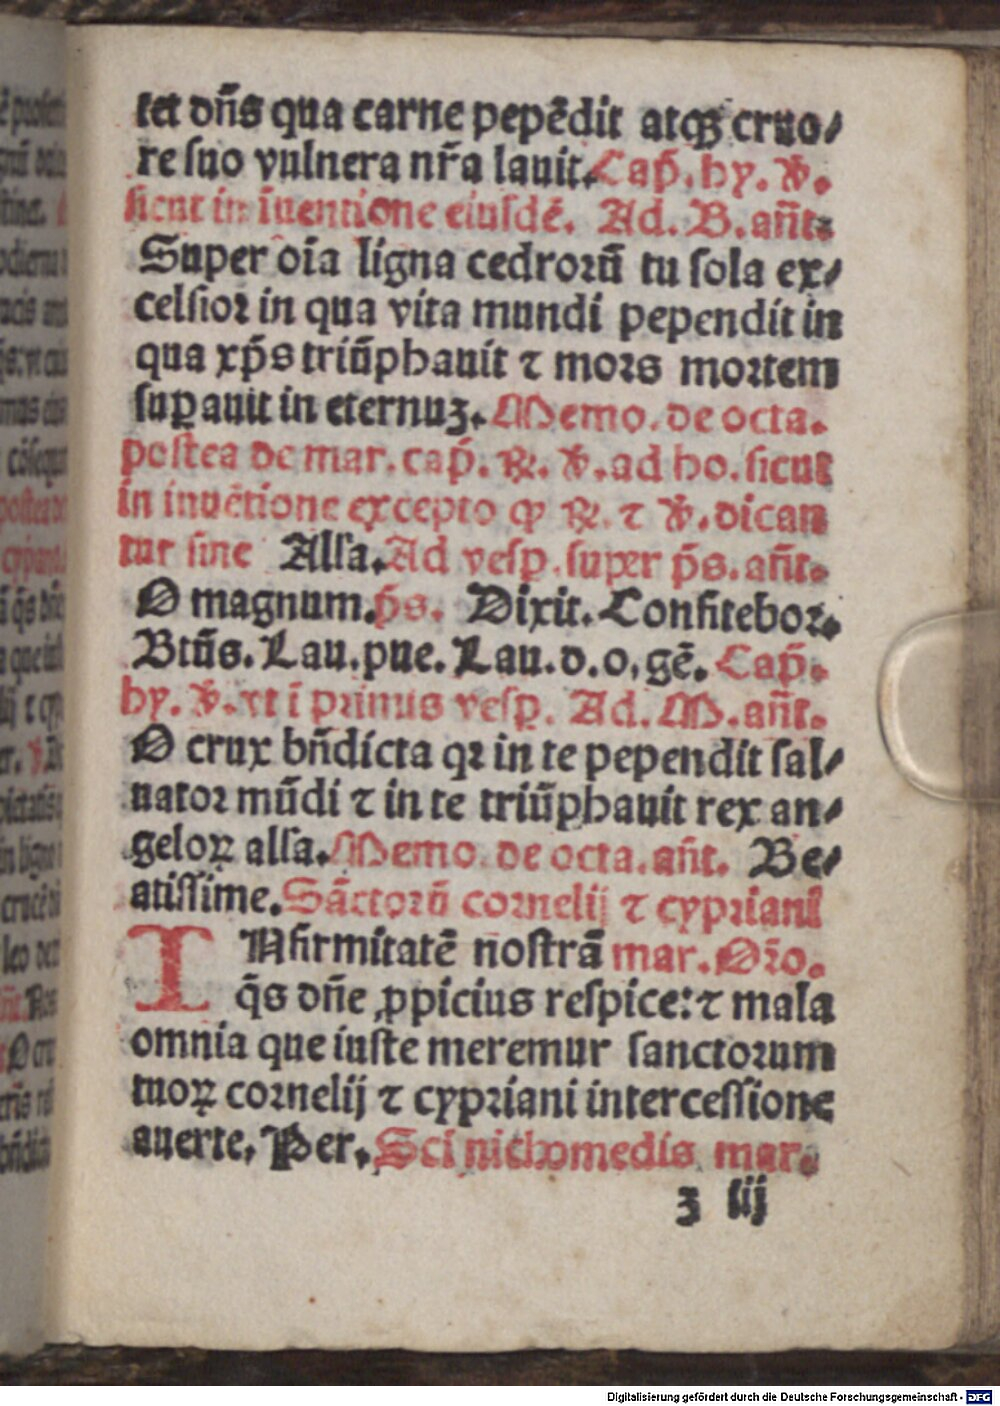 tet dn̄s qua carne pepēdit atqꝫ cruo⸗
re suo vulnera nr̄a lauit. Cap̄. hy. ꝟ.
sicut in īuentione eiusdē. Ad. B. an̄t.
Super oīa ligna cedrorū tu sola ex⸗
celsior in qua vita mundi pependit in
qua xp̄s triūphauit ⁊ mors mortem
suꝑauit in eternuꝫ. Memo. de octa.
postea de mar. cap̄. ℟. ꝟ. ad ho. sicut
in inuētione excepto ꝙ ℟. ⁊ ꝟ. dican
tur sine Alla. Ad vesp. super p̄s. an̄t.
O magnum. p̄s. Dixit. Confitebor.
Btūs. Lau. pue. Lau. d. o. gē. Cap̄.
hy. ꝟ. vt ī primus vesp. Ad. M. an̄t.
O crux bn̄dicta qꝛ in te pependit sal⸗
uator mūdi ⁊ in te triūphauit rex an⸗
geloꝝ alla. Memo. de octa. an̄t. Be⸗
atissime. Sāctorū cornelij ⁊ cypriani
INfirmitatē nostrā mar. Or̄o.
q̄s dn̄e ꝓpicius respice: ⁊ mala
omnia que iuste meremur sanctorum
tuoꝝ cornelij ⁊ cypriani intercessione
auerte. Per. Sci nichomedis mar.
ʒ iij
Digitalisierung gefördert durch die Deutsche Forschungsgemeinschaft - DFG